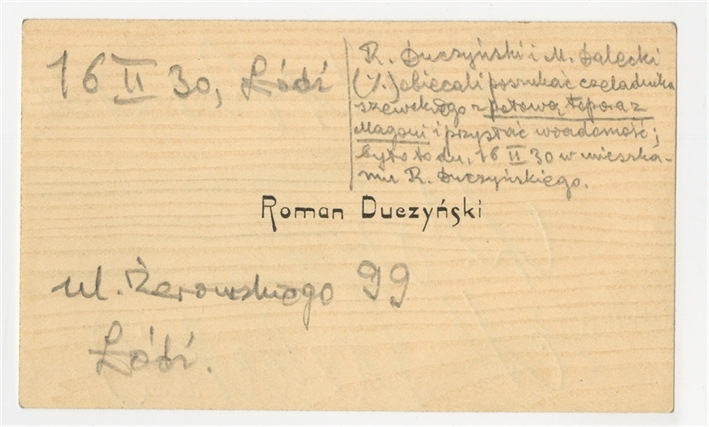 16 II 30, Łódź
R. Duczyński i M. Dalecki
(?.) obiecali poszukać czeladnika
szewskiego z petową
Magoni i przysłać wiadomość;
było to dn. 16 II 30 w mieszka-
niu R. Duczyńskiego.
Roman Duczyński
ul. Żerowskiego 99
Łódź.